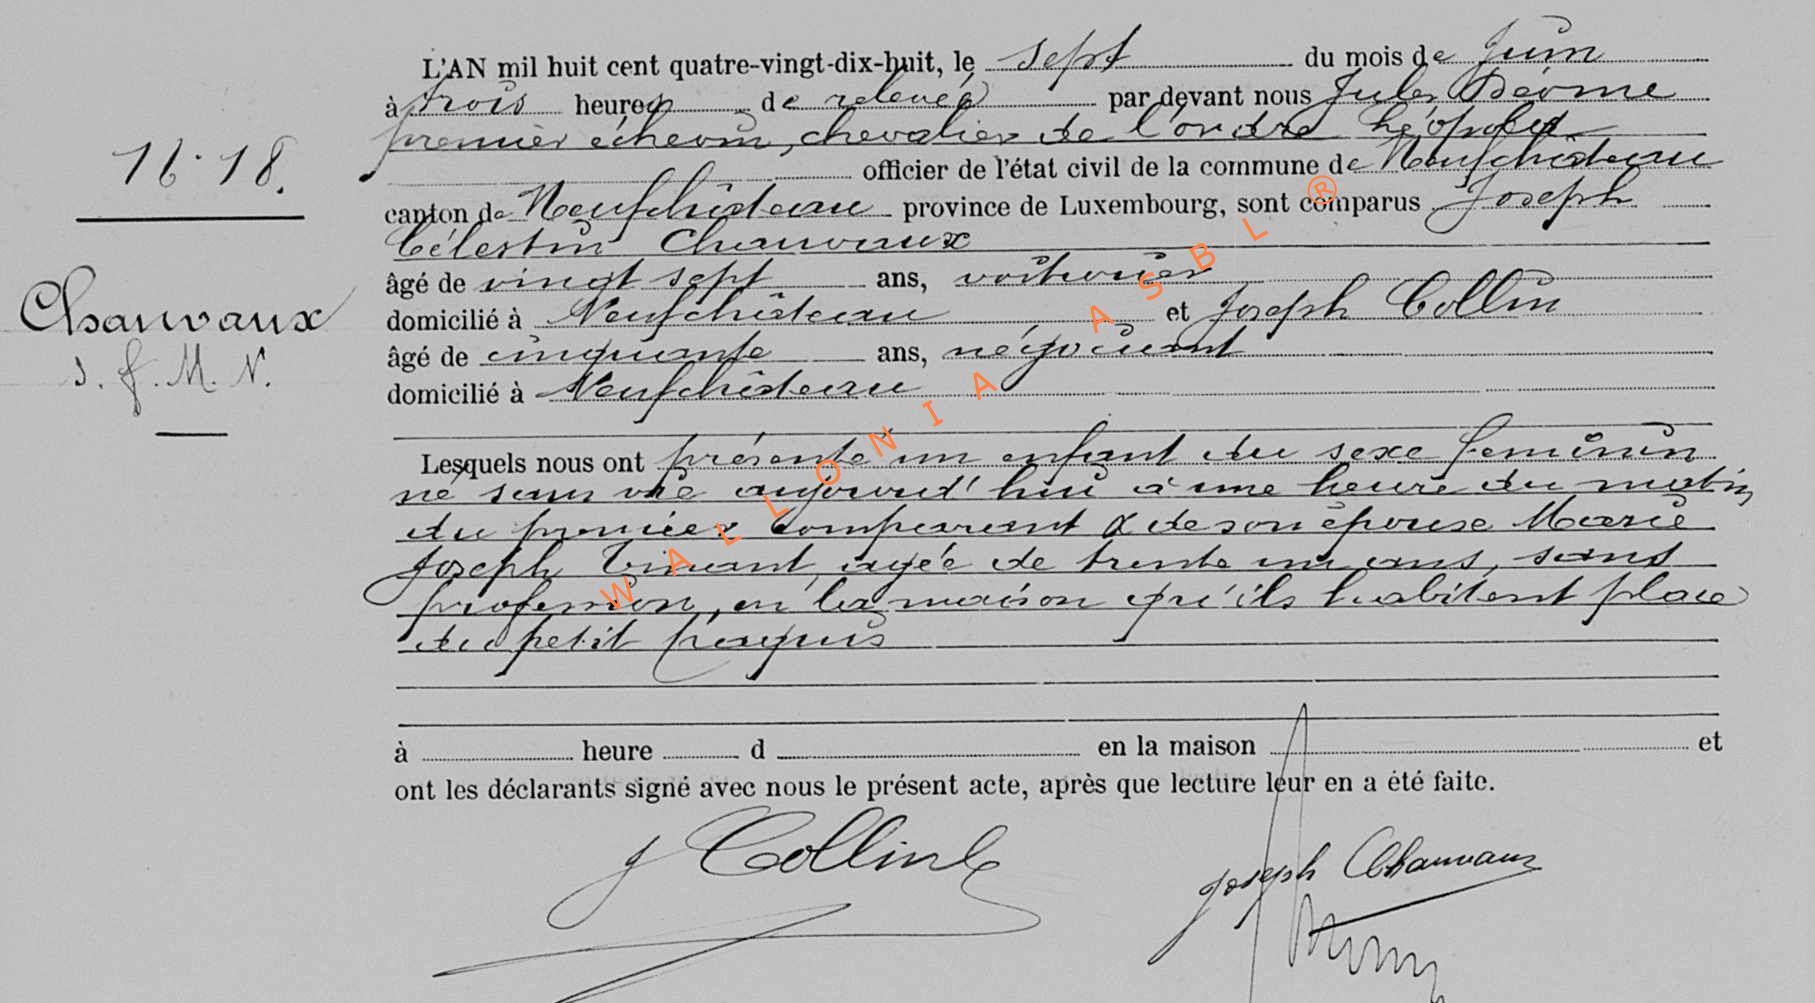 L'AN mil huit cent quatre-vingt-dix-huit, le sept du mois de Juin
à trois heures de relevée par devant nous Jules Déôme
premier échevin, chevalier de l'ordre Léopold
officier de l'état civil de la commune de Neufchâteau
canton de Neufchâteau province de Luxembourg, sont comparus Joseph
Célestin Chauvaux
âgé de vingt sept ans, voiturier
domicilié à Neufchâteau et Joseph Collin
âgé de cinquante ans, négociant
domicilié à Neufchâteau
Lesquels nous ont présenté un enfant du sexe feminin
né sans vie aujourd'hui à une heure du matin
du premier comparant & de son épouse Marie
Joseph Tinant, agée de trente un ans, sans
profession, en la maison qu'ils habitent place
du petit
à heure d en la maison et
ont les déclarants signé avec nous le présent acte, après que lecture leur en a été faite.
J Collin
Joseph Chauvaux
16.18.
Chauvaux
J. f. M. N.
WALLONIA ASBL ®